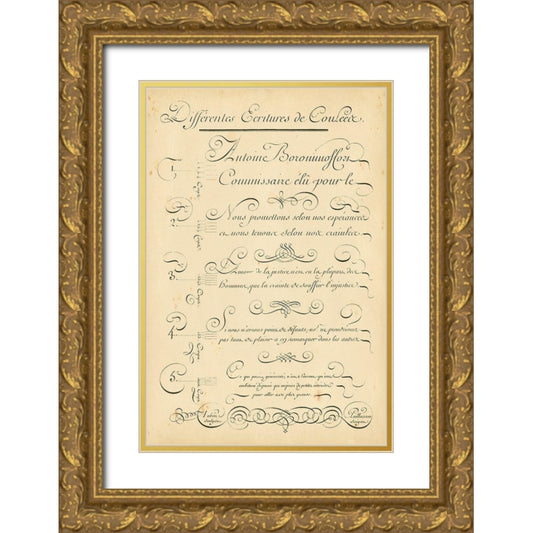 Differentes Ecritures de Coulée
1 Antoine
Commissaire élû pour le
2 Nous promettons selon nos esperances
et nous tenons selon nos craintes
3 Amour de la justice n'est en la plupart des
hommes que la crainte de souffrir l'injustice
4 Si nous n'avions point de défauts, nous ne prendrions
pas tant de plaisir a en remarquer dans les autres
5 Ce qui paroit générosité, n'est
ambition déguisée qui méprise de petits interêts
pour aller aux plus grands